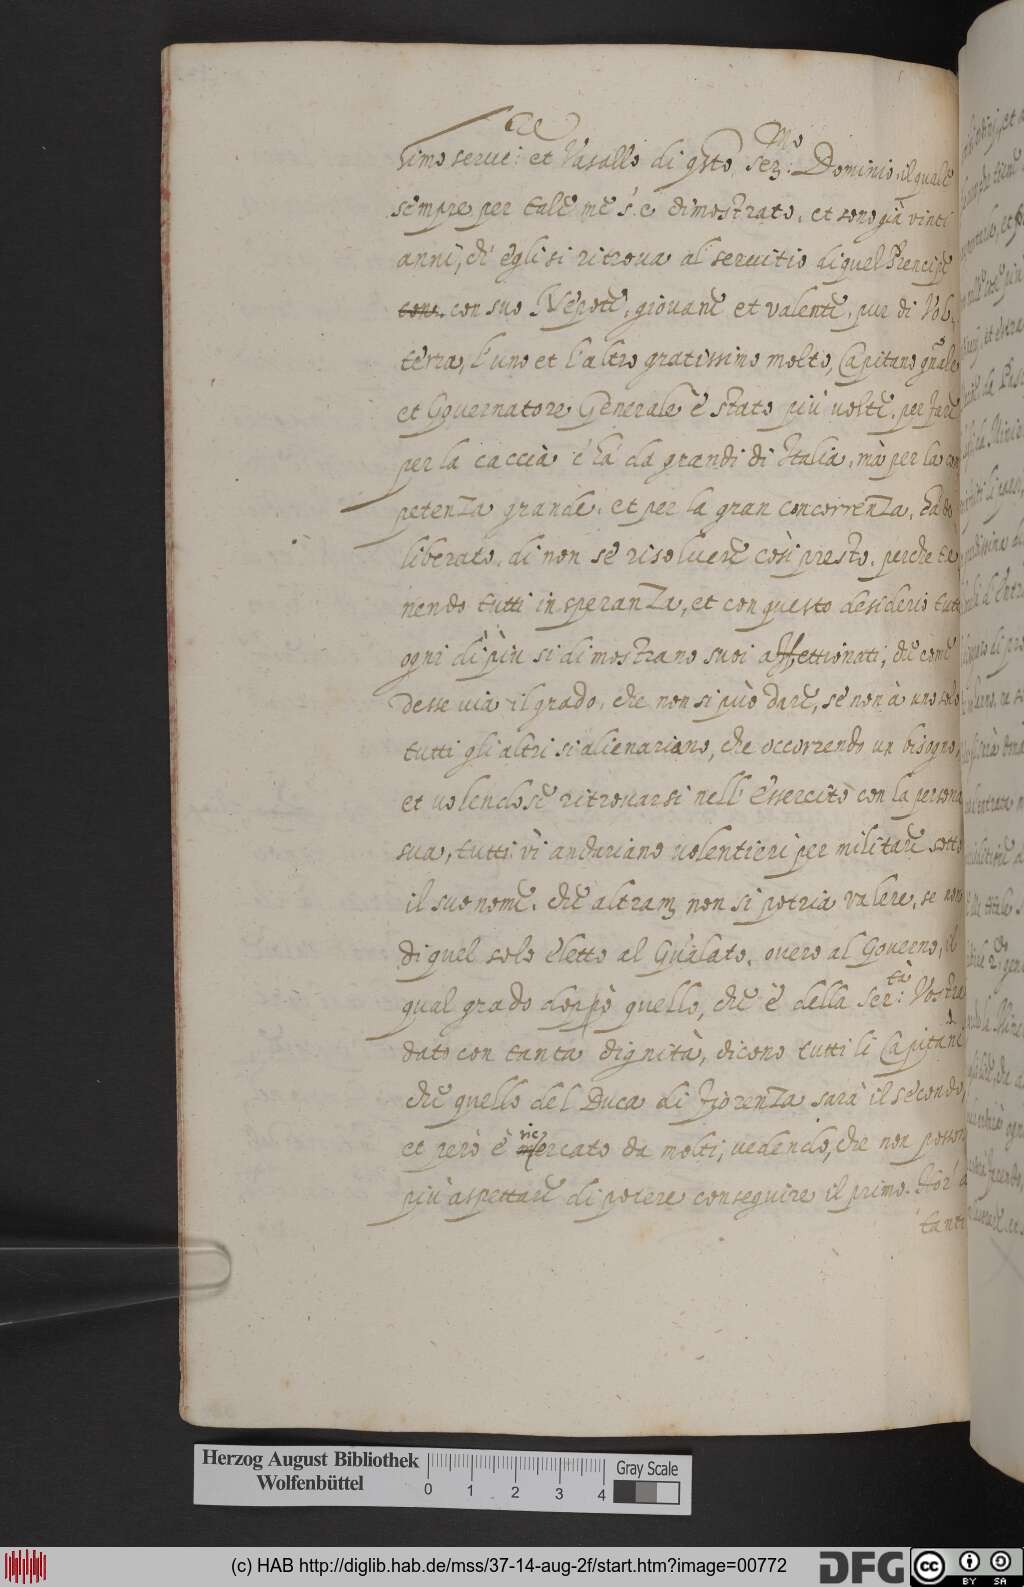 simo serui:re et Vasallo di qsto ser:mo Dominio, il quale
sempre per tale me s'è dimostrato, et sono già vinti
anni, ch' egli si ritroua al seruitio di quel Prencipe
con suo Nepote, giouane et valente, pur di Vol,
terra, l'uno et l'altro gratissimo molto, Capitano gnale
et Gouernatore Generale è stato più uolte, per fare
per la caccia c'ha da grandi di Italia, mà per la com
petenza grande, et per la gran concorrenza, ha de
liberato, di non se risoluere così presto, perche te
nendo tutti in speranza, et con questo desiderio tutti
ogni dì più si dimostrano suoi affettionati, che come
desse uia il grado, che non si può dare, se non à uno solo
tutti gli altri si alienariano, che occorrendo un bisogno,
et uolendose ritrouarsi nell' Essercito con la persona
sua, tutti vi andariano uolentieri per militare sotto
il suo nome, che altram non si potria valere, se non
di quel solo eletto al Gnalato, ouero al Gouerno, il
qual grado doppò quello, che è della Ser:tà Vostra
dato con tanta dignità, dicono tutti li Capitani
che quello del Duca di Fiorenza sarà il secondo,
et però è ricercato da molti, uedendo, che non possono
più aspettare di potere conseguire il primo. Hor' di
tanti
Herzog August Bibliothek
Wolfenbüttel
0 1 2 3 4
Gray Scale
(c) HAB http://diglib.hab.de/mss/37-14-aug-2f/start.htm?image=00772
DFG
cc BY SA